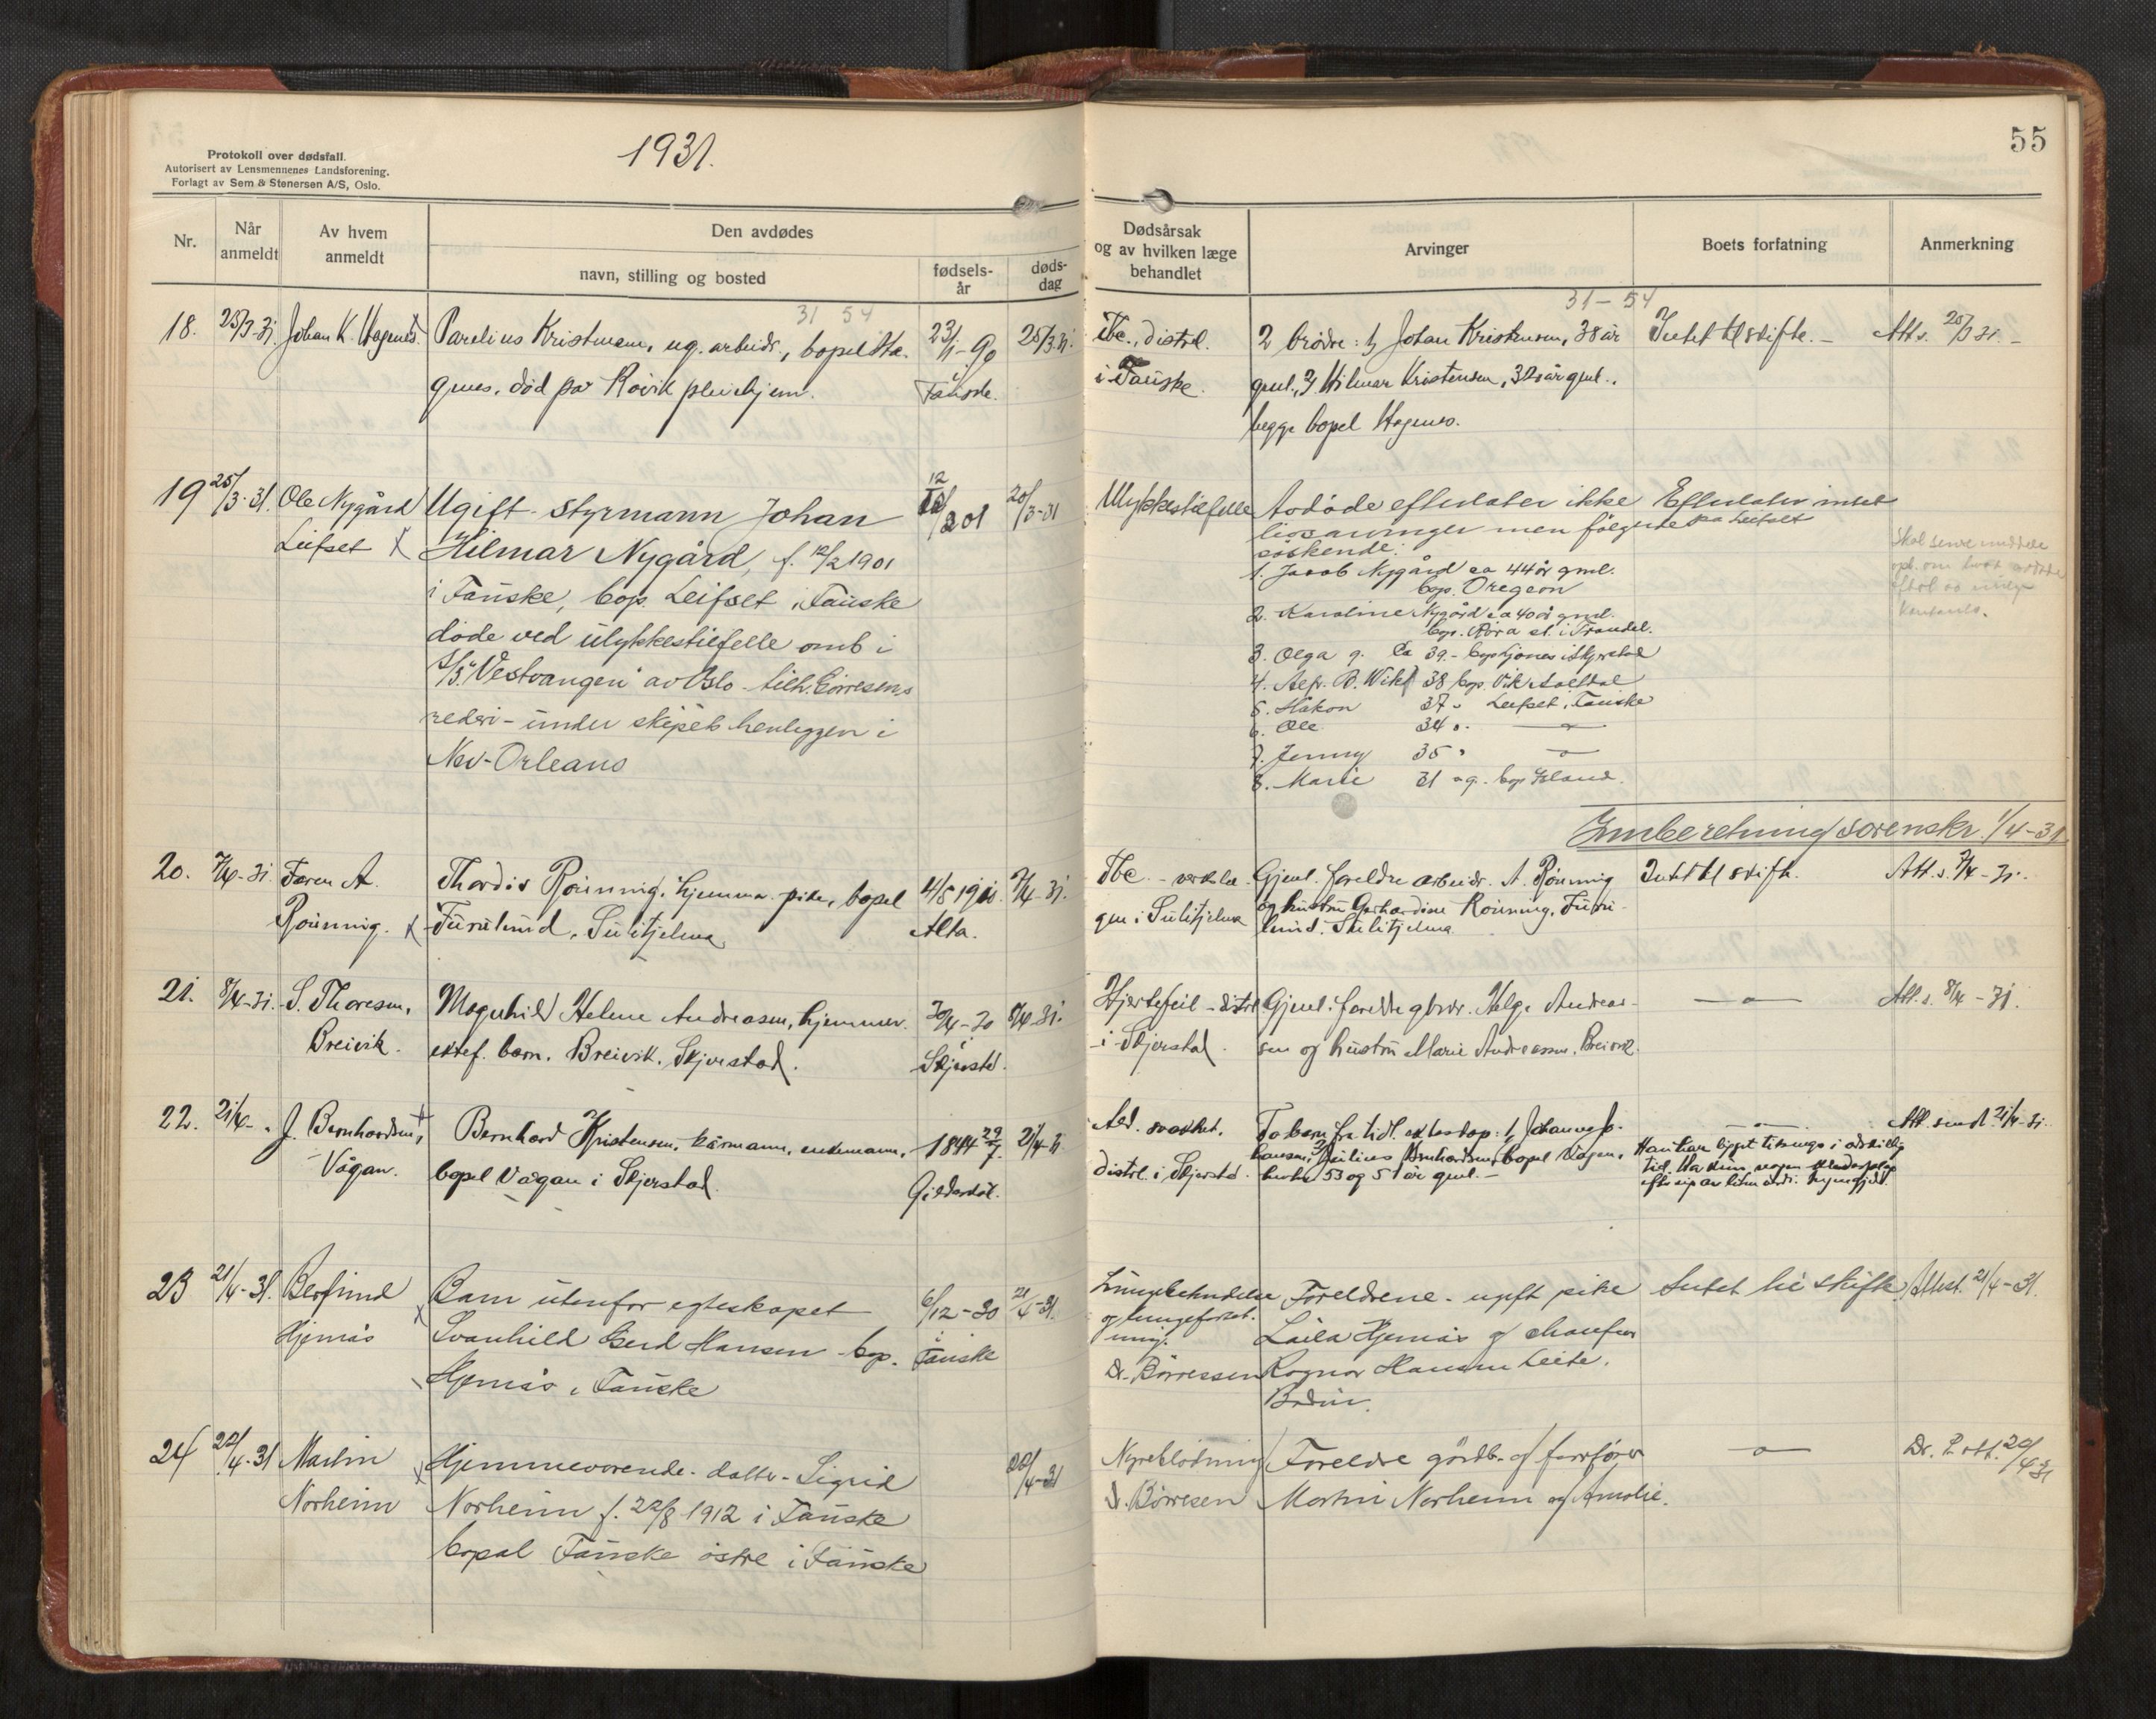 1931.
55
Protokoll over dødsfall.
Autorisert av Lensmennenes Landsforening.
Forlagt av Sem & Stenersen A/S, Oslo.
Nr.
Når anmeldt
Av hvem anmeldt
Den avdødes
navn, stilling og bosted
fødsels-år
døds-dag
Dødsårsak
og av hvilken læge
behandlet
Arvinger
Boets forfatning
Anmerkning
31 54
31 - 54
18. 25/3-31. Johan K. Hagenes
Parelius Kristensen, ug. arbeidr., bopel Ha-
genes, død på Røvik pleiehjem.
23/1-90
Fauske.
25/3 31.
Tbc., distrl.
i Fauske.
2 brødre: 1, Johan Kristensen, 38 år
gml., 2, Hilmar Kristensen, 32 år gml.,
begge bopel Hagenes.
Intet til skifte. -
Att s. 25/3 31. -
19 25/3-31. Ole Nygård
Leifset
Ugift styrmann Johan
Hilmar Nygård, f. 12/2 1901
i Fauske, bop. Leifset i Fauske
døde ved ulykkestilfelle omb i
S/S. "Vestvangen" av Oslo - tilh.
rederi - under skipets henliggen i
New-Orleans
12/2 01
20/3-31
Ulykkestilfelle
Avdøde efterlater ikke
livsarvinger men følgende
søskende:
1. Jacob Nygård ca 44 år gml.
bop. Oregon
2. Karoline Nygård ca 40 år gml.
3. Olga g. ca 39 -
4. 38 bop. Vik Saltdal
5. Håkon 37 - Leifset, Fauske
6. Ole 34 " - " -
7. Jenny 35 " - " -
8. Marie 31 ug. bop
Efterlater intet
på Leifset
Innberetning sorenskr. 1/4-31
20. 7/4-31. Faren A.
Rønning.
Thordis Rønning, hjemmev. pike, bopel
Furulund, Sulitjelma
4/8 1910.
Alta.
7/4 31.
Tbc. - verksle-
gen i Sulitjelma
Gjenl. foreldre arbeidr. A. Rønning
og hustru Gerhardine Rønning, Furu-
lund, Sulitjelma
Intet til skifte.
Att. s. 7/4-31.
21. 8/4-31. S. Thoresen,
Breivik.
Magnhild Helene Andreasen, hjemmev.
ektef. barn, Breivik, Skjerstad.
30/4-30
Skjerstd.
8/4-31.
Hjertefeil - distrl
i Skjerstad.
Gjenl: foreldre gbrdr. Helge Andreas-
sen og hustru Marie Andreassen, Breivik.
- " -
Att. s. 8/4-31.
22. 21/4- " J. Bernhardsen,
Vågan.
Bernhard Kristensen, kårmann, enkemann,
bopel Vågan i Skjerstad.
1844 29/7.
Gildeskål.
21/4-31
Ald. svakhet.
distrl. i Skjerstd.
To barn fra tidl. ekteskap: 1, Johannes Jo-
hansen, 2, Julius Bernhardsen, bopel Vågan,
henhv. 53 og 51 år gml. -
- " -
Han har ligget tilsengs i adskillig
tid.
Att. sendt 21/4-31.
23 21/4-31. Berfind
Hjemås
Barn utenfor egteskapet
Svanhild Gerd Hansen bop.
Hjemås i Fauske
6/12-30
Fauske
21/4-31.
Lungebetendelse
og
Dr. Børressen
Foreldrene - ugift pike
Laila Hjemås og chaufør
Ragnar Hansen Leite.
Bodin.
Intet til skifte.
Attest. 21/4-31.
24 22/4-31 Martin
Norheim
Hjemmeværende datter Sigrid
Norheim f. 22/8 1912 i Fauske
bopel Fauske østre i Fauske
20/4-31
Nyreblødning
Dr. Børresen
Foreldre gårdb. og forfører
Martin Norheim og Amalie.
- " -
Dr. s att. 20/4 31